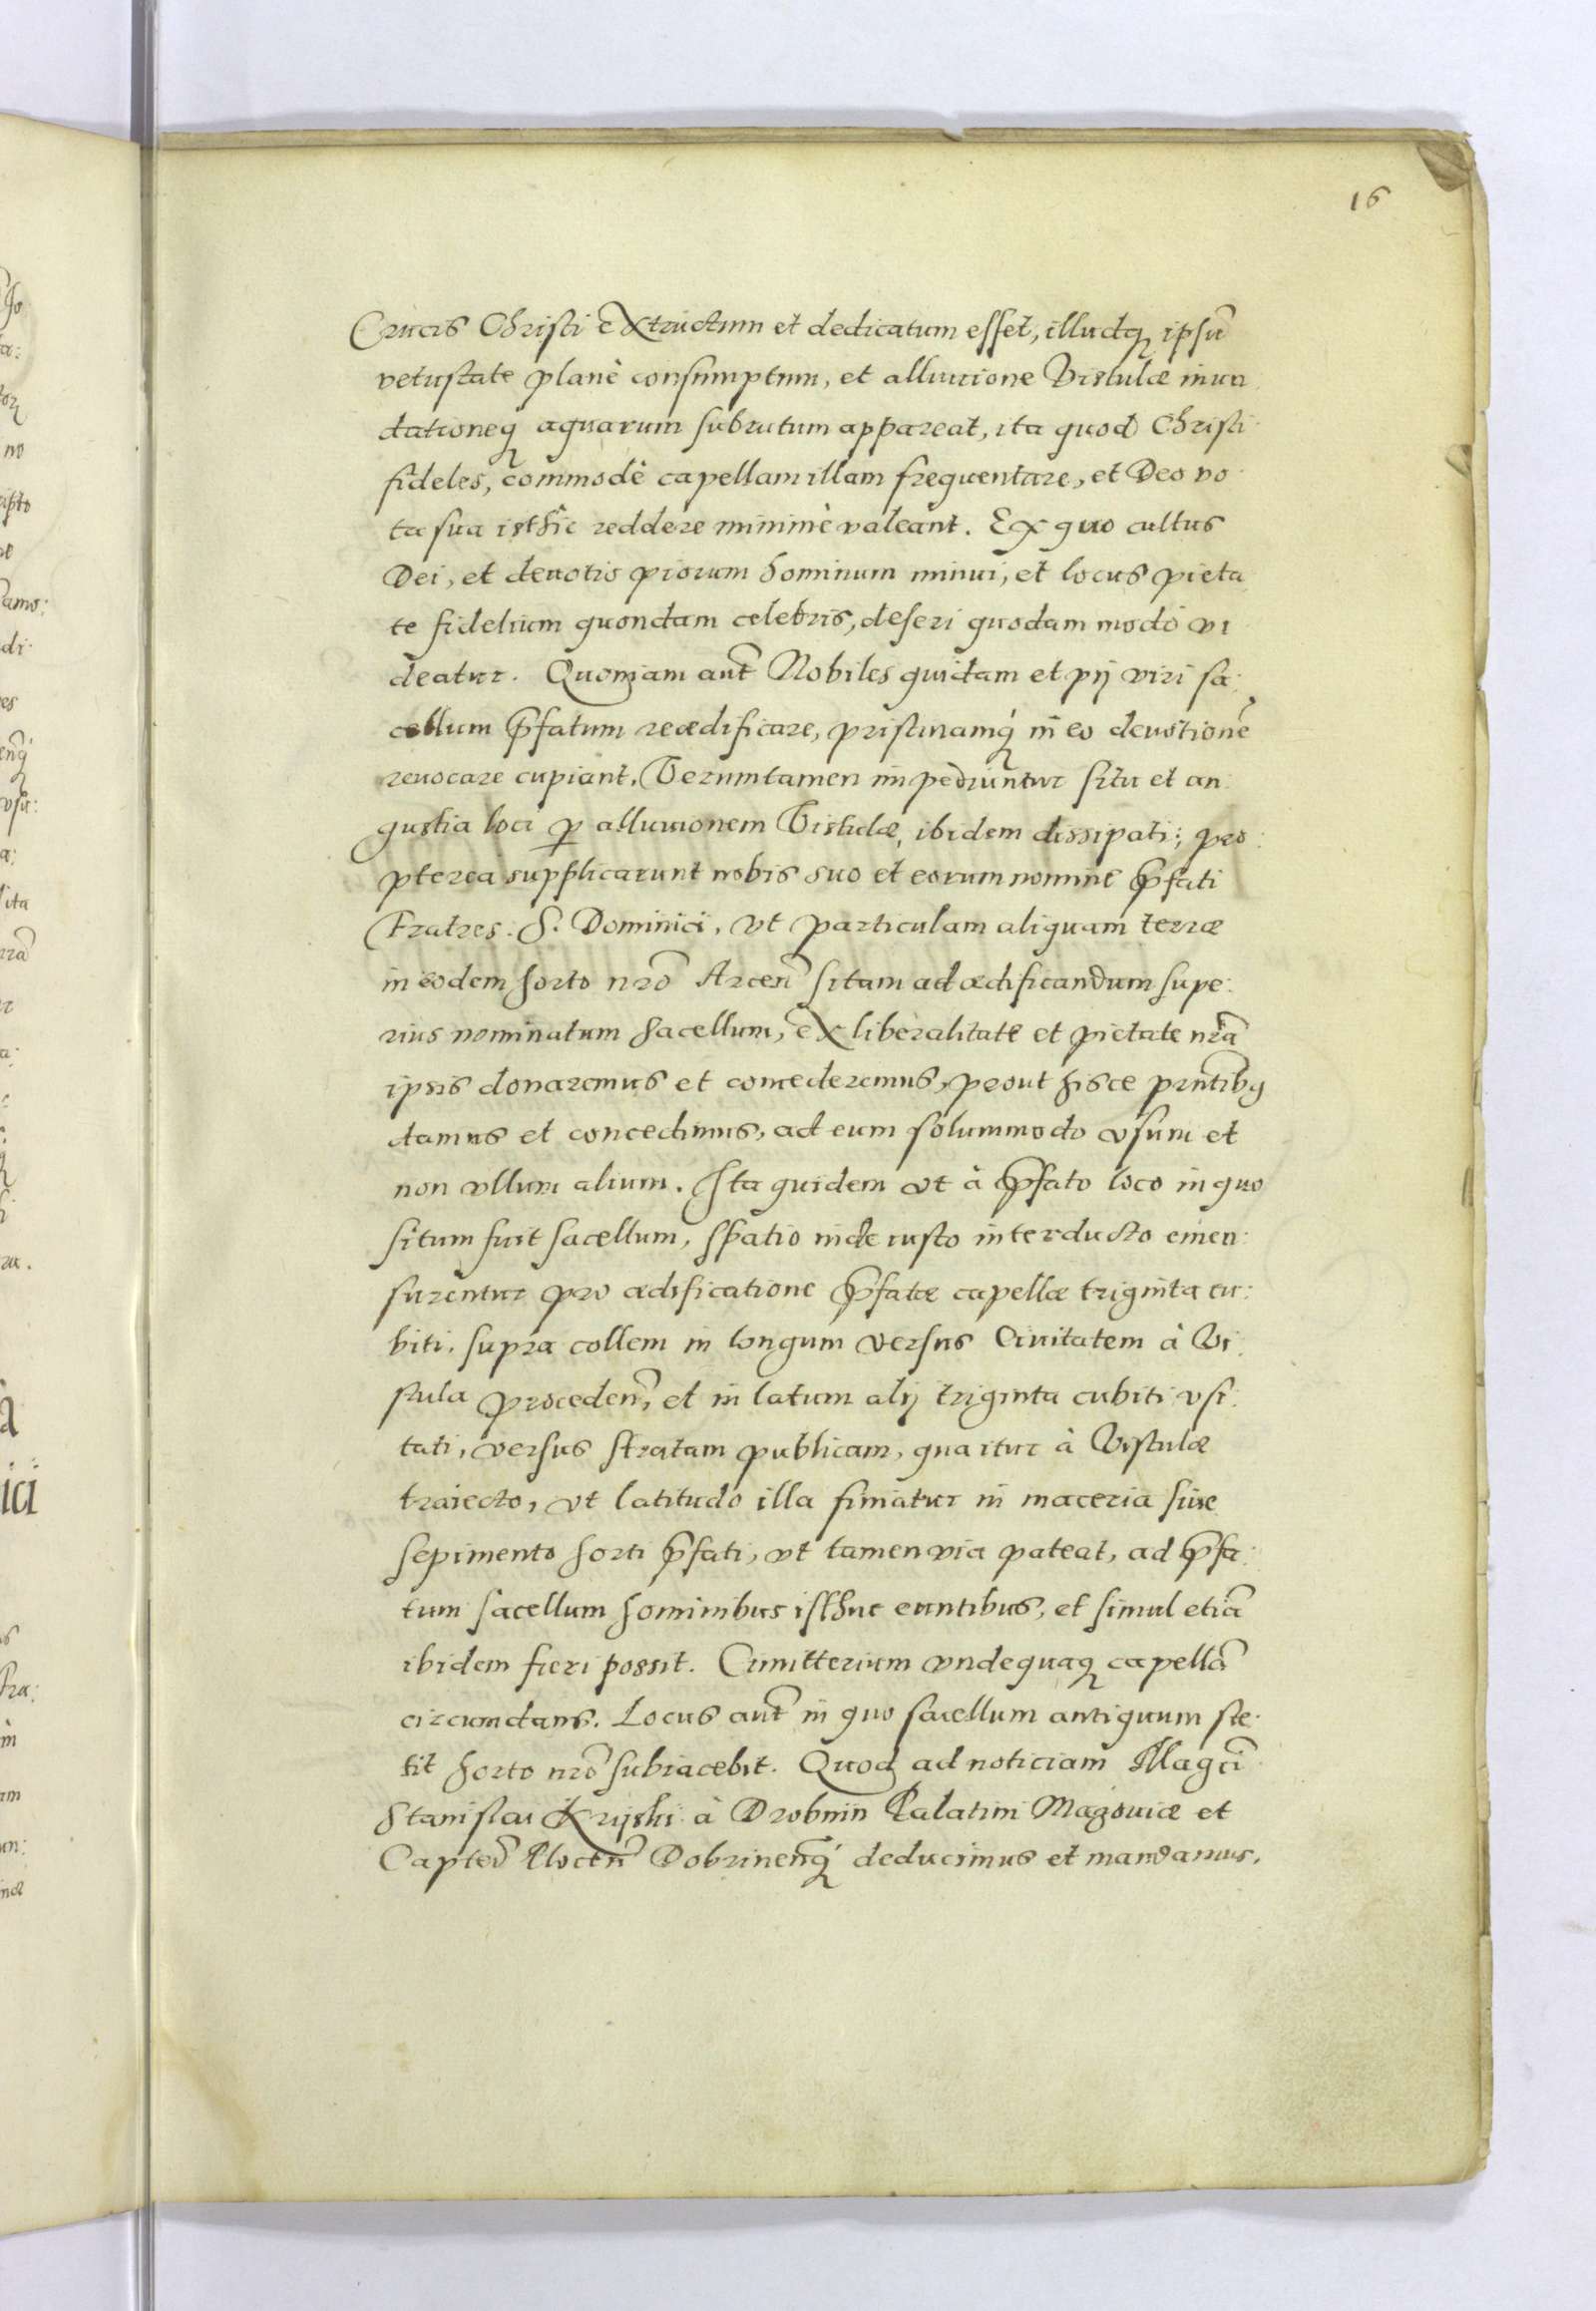 16
Crucis Christi extructum et dedicatum esset, illudq, ipsũ
vetustate planè consumptum, et alluuione Vistulæ inun
dationeq, aquarum subrutum appareat, ita quod Christi
fideles, commodè capellam illam frequentare, et Deo vo
ta sua isthic reddere minimè valeant. Ex quo cultus
Dei, et deuotio piorum hominum minui, et locus pieta
te fidelium quondam celebris, deseri quodammodò vi
deatur. Quoniam aut̃ Nobiles quidam et pij viri sa:
cellum p̃fatum reædificare, pristinamq, in eo deuotionẽ
reuocare cupiant, Verumtamen impediuntur situ et an
gustia loci p alluuionem Vistulæ, ibidem dissipati; pro:
pterea supplicarunt nobis suo et eorum nomine p̃fati
Fratres S. Dominici, vt particulam aliquam terræ
in eodem horto nr̃o Arceñ sitam ad ædificandum supe:
rius nominatum sacellum, ex liberalitate et pietate nr̃a
ipsis donaremus et concederemus, prout hisce pñtibq
damus et concedimus, ad eum solummodo vsum et
non vllum alium. Ita quidem vt à p̃fato loco in quo
situm fuit sacellum, spatio inde iusto interducto emen:
surentur pro ædificatione p̃fatæ capellæ triginta cu:
biti, supra collem in longum versus Ciuitatem à Vi:
stula procedeñ, et in latum alij triginta cubiti vsi:
tati, versus stratam publicam, qua itur à Vistulæ
traiecto, vt latitudo illa finiatur in maceria siue
sepimento horti p̃fati, vt tamen via pateat, ad p̃fa:
tum sacellum hominibus isthuc euntibus, et simul etiã
ibidem fieri possit. Cimitterium vndequaq, capellã
circumdans. Locus aut̃ in quo sacellum antiquum ste:
tit horto nr̃o subiacebit. Quod ad noticiam Magc̃i
Stanislai Kryski à Drobnin Palatini Mazouiæ et
Capteĩ Ploceñ Dobrineñq, deducimus et mandamus.